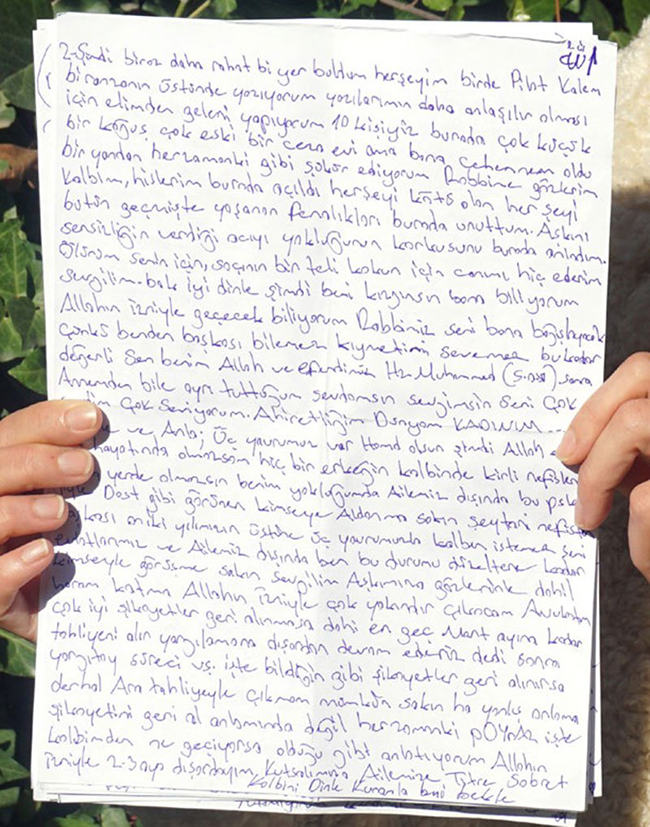 2-Şimdi biraz daha rahat bi yer buldum herşeyim birde Pilot Kalem
bi ranzanın üstünde yazıyorum yazılarımın daha anlaşılır olması
için elimden geleni yapıyorum 10 kişiyiz burada çok küçük
bir koğuş çok eski bir ceza evi ama bana cehennem oldu
bir yandan herzamanki gibi şükür ediyorum Rabbime gözlerim
Kalbim, hislerim burada açıldı herşeyi kötü olan her şeyi
bütün geçmişte yaşanan fenalıkları burada unuttum. Aşkını
sensizliğin verdiği acıyı yokluğunun korkusunu burada anladım.
Ölürüm senin için, saçının bir teli kokun için canımı hiç ederim
sevgilim. bak iyi dinle şimdi beni kızgınsın bana biliyorum
Allahın izniyle geçecek biliyorum Rabbimiz seni bana bağışlayacak
çünkü benden başkası bilemez kıymetini sevemez bu kadar
değerli Sen benim Allah ve efendimiz Hz Muhammed (S.a.v) sonra
Annemden bile ayrı tuttuğum sevdamsın sevgimsin Seni Çok
Çok Seviyorum. Ahiretliğim Dünyam KADINIM
ve Üç yavrumuz var Hamd olsun şimdi Allah
hayatında olmazsam hiç bir erkeğin kalbinde kirli nefisler
yerde olmazsın benim yokluğumda Ailemiz dışında bu
Dost gibi görünen kimseye Aldanma sakın şeytani
oniki yılımızın üstüne üç yavrumunda kalben istemem seni
evlatlarımız ve Ailemiz dışında ben bu durumu düzeltene kadar
kimseyle görüşme sakın sevgilim Aşkımına gözlerinle dahil
haram katma Allahın izniyle çok yakında çıkacam Avukatım
çok iyi şikayetler geri alınmasa dahi en geç Mart ayına kadar
tahliyeni alır yargılamana dışardan devam ederiz dedi sonra
yargıtay süreci vs. işte bildiğin gibi şikayetler geri alınırsa
derhal Ara tahliyeyle çıkmam mümkün sakın ha yanlış anlama
şikayetini geri al anlamında değil herzamanki işte
kalbimden ne geçiyorsa olduğu gibi anlatıyorum Allahın
izniyle 2-3 aya dışardayım Kutsalımıza Ailemize Sabret
Kalbini Dinle Kuranla beni bekle